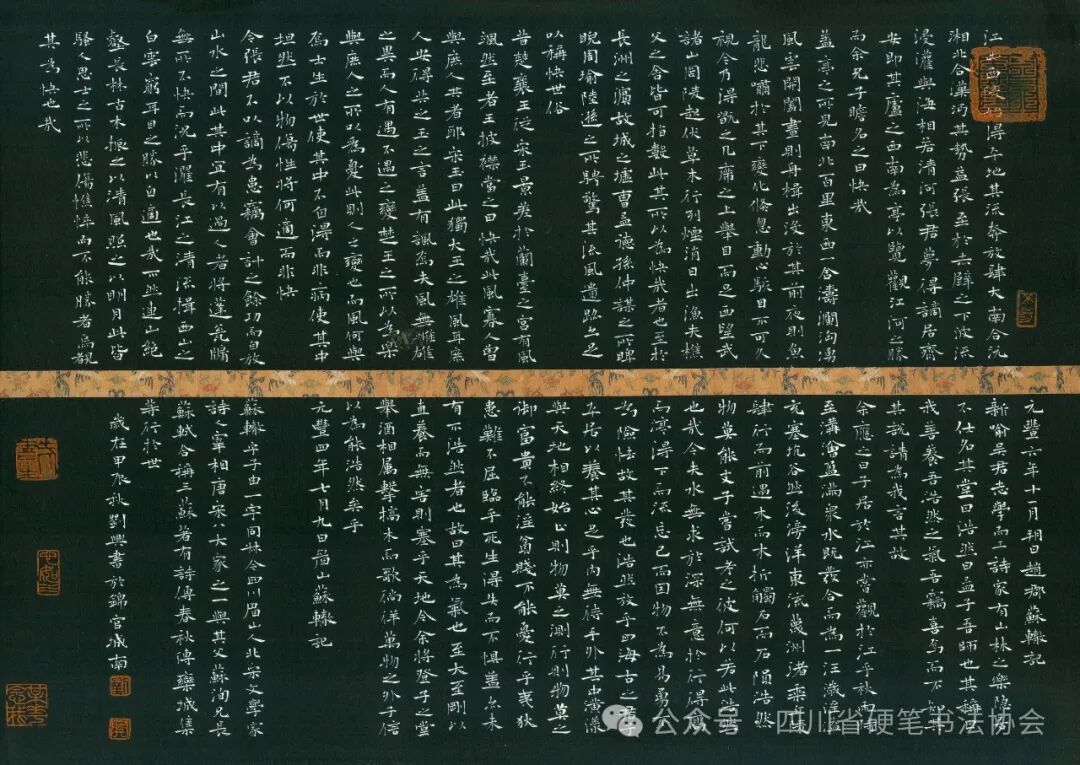 江出西陵始得平地其流奔放肆大南合沅
湘北合漢沔其勢益張至於赤壁之下波流
浸灌與海相若清河張君夢得謫居齊
安即其廬之西南為亭以覽觀江河之勝
而余兄子瞻名之曰快哉
蓋亭之所見南北百里東西一合濤瀾洶湧
風雲開闔晝則舟楫出沒於其前夜則魚
龍悲嘯於其下變化倏忽動心駭目不可久
視今乃得翫之几席之上舉目而足西望武
諸山岡陵起伏草木行列煙消日出漁夫樵
父之舍皆可指數此其所以為快哉者也至於
長洲之濱故城之墟曹孟德孫仲謀之所睥
睨周瑜陸遜之所騁騖其流風遺跡亦足
以稱快世俗
昔楚襄王從宋玉景差於蘭臺之宮有風
颯然至者王披襟當之曰快哉此風寡人所
與庶人共者耶宋玉曰此獨大王之雄風耳庶
人安得共之玉之言蓋有諷焉夫風無雌雄
之異而人有遇不遇之變楚王之所以為樂
與庶人之所以為憂此則人之變也而風何與
焉士生於世使其中不自得而非病使其中
坦然不以物傷性將何適而非快
今張君不以謫為患竊會計之餘功而自放
山水之間此其中宜有以過人者將蓬甕牖
無所不快而況乎濯長江之清流揖西山之
白雲窮耳目之勝以自適也哉不然連山絕
壑長林古木振之以清風照之以明月此皆
騷人思士之所以悲傷憔悴而不能勝者烏覩
其為快也哉
元豐六年十一月朔日趙郡蘇轍記
新喻吳君志學而工詩家有山林之樂隱居
不仕名其堂曰浩然曰孟子吾師也其稱
我善養吾浩然之氣吾竊喜焉而不知其
其說請為我言其故
余應之曰子居於江亦嘗觀於江乎秋雨
至溝澮盈滿眾水既發合而為一汪濊淫溢
充塞坑谷然後滂洋東流蔑洲渚乘丘
肆行而前遇木而木折觸石而石隕浩然
物莫能支子嘗試考之彼何以若此浩
也哉今夫水無求於深無意於行得高
而渟得下而流忘己而因物不為易勇不
為嶮怯故其發也浩然放乎四海古之君子
平居以養其心足乎內無待乎外其中潢漾
與天地相終始止則物莫之測行則物莫之
御富貴不能淫貧賤不能憂行乎夷狄
患難不屈臨乎死生得失而不懼蓋亦未
有不浩然者也故曰其為氣也至大至剛以
直養而無害則塞乎天地今余將登子之堂
舉酒相屬擊槁木而歌徜徉萬物之外子信
以為能浩然矣乎
元豐四年七月九日眉山蘇轍記
蘇轍字子由一字同叔今四川眉山人北宋文學家
詩人宰相唐宋八大家之一與其父蘇洵兄長
蘇軾合稱三蘇著有詩傳春秋傳欒城集
等行於世
歲在甲辰秋劉興書於錦官城南
公众号 · 四川省硬笔书法协会